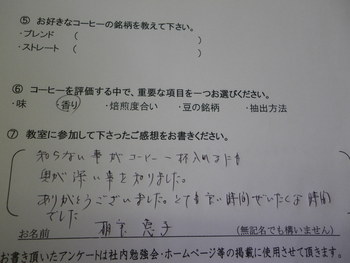 ⑤ お好きなコーヒーの銘柄を教えて下さい。
・ブレンド (　　　　　)
・ストレート (　　　　　)
⑥ コーヒーを評価する中で、重要な項目を一つお選びください。
・味 ・香り ・焙煎度合い ・豆の銘柄 ・抽出方法
⑦ 教室に参加して下さったご感想をお書きください。
知らない事がコーヒー一杯入れるにも
奥が深い事を知りました。
ありがとうございました。とても言い時間ぜいたくな時間
でした
お名前 恵子 (無記名でも構いません)
お書き頂いたアンケートは社内勉強会・ホームページ等の掲載に使用させて頂きます。